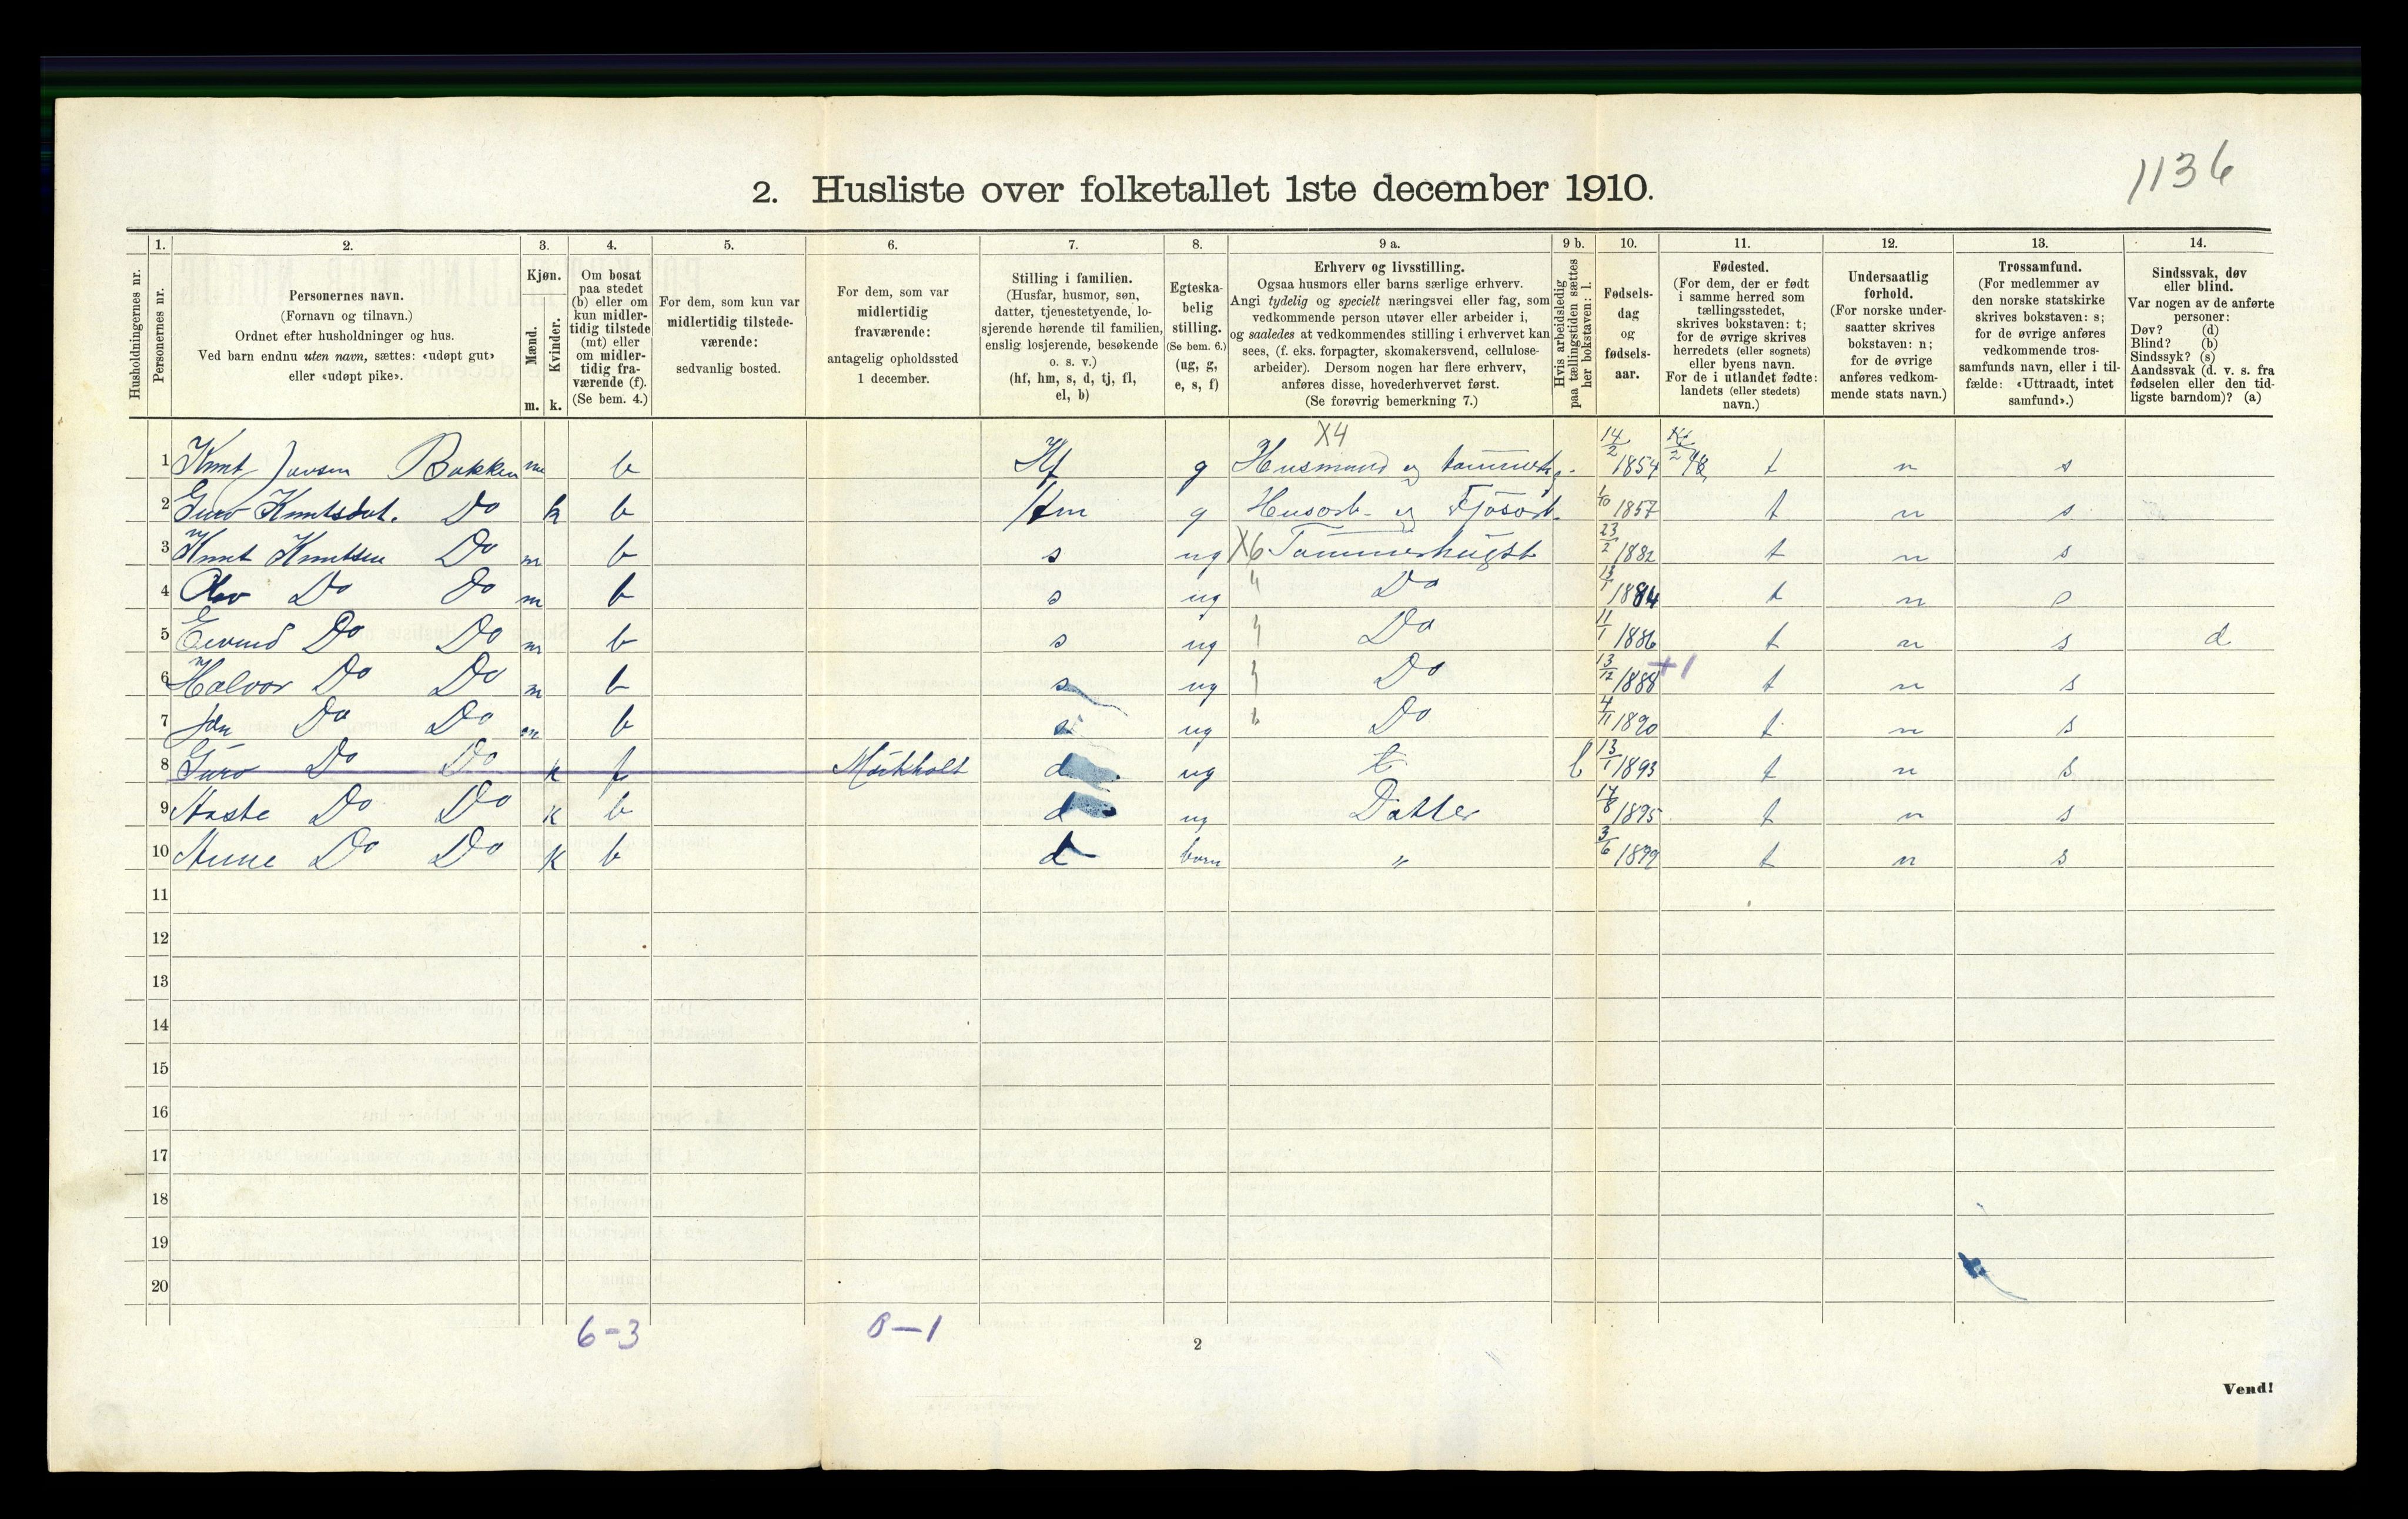 1136
2. Husliste over folketallet 1ste december 1910.
1. 2. 3. 4. 5. 6. 7. 8. 9 a. 9 b. 10. 11. 12. 13. 14.
Husholdningernes nr.
Personernes nr.
Personernes navn.
(Fornavn og tilnavn.)
Ordnet efter husholdninger og hus.
Ved barn endnu uten navn, sættes: «udøpt gut»
eller «udøpt pike».
Kjøn.
Mænd.
Kvinder.
m. k.
Om bosat
paa stedet
(b) eller om
kun midler-
tidig tilstede
(mt) eller
om midler-
tidig fra-
værende (f).
(Se bem. 4.)
For dem, som kun var
midlertidig tilstede-
værende:
sedvanlig bosted.
For dem, som var
midlertidig
fraværende:
antagelig opholdssted
1 december.
Stilling i familien.
(Husfar, husmor, søn,
datter, tjenestetyende, lo-
sjerende hørende til familien,
enslig losjerende, besøkende
o. s. v.)
(hf, hm, s, d, tj, fl,
el, b)
Egteska-
belig
stilling.
(Se bem. 6.)
(ug, g,
e, s, f)
Erhverv og livsstilling.
Ogsaa husmors eller barns særlige erhverv.
Angi tydelig og specielt næringsvei eller fag, som
vedkommende person utøver eller arbeider i,
og saaledes at vedkommendes stilling i erhvervet kan
sees, (f. eks. forpagter, skomakersvend, cellulose-
arbeider). Dersom nogen har flere erhverv,
anføres disse, hovederhvervet først.
(Se forøvrig bemerkning 7.)
Hvis arbeidsledig
paa tællingstiden sættes
her bokstaven: l.
Fødsels-
dag
og
fødsels-
aar.
Fødested.
(For dem, der er født
i samme herred som
tællingsstedet,
skrives bokstaven: t;
for de øvrige skrives
herredets (eller sognets)
eller byens navn.
For de i utlandet fødte:
landets (eller stedets)
navn.)
Undersaatlig
forhold.
(For norske under-
saatter skrives
bokstaven: n;
for de øvrige
anføres vedkom-
mende stats navn.)
Trossamfund.
(For medlemmer av
den norske statskirke
skrives bokstaven: s;
for de øvrige anføres
vedkommende tros-
samfunds navn, eller i til-
fælde: «Uttraadt, intet
samfund».)
Sindssvak, døv
eller blind.
Var nogen av de anførte
personer:
Døv? (d)
Blind? (b)
Sindssyk? (s)
Aandssvak (d. v. s. fra
fødselen eller den tid-
ligste barndom)? (a)
X4
1 Knut Jonsen Bakken m b Hf g Husmand og tømmerh. 14/2 1854 t n s
2 Guro Knutsdat. Do k b Hm g Husarb. og Fjøsarb. 1857 t n s
3 Knut Knutsen Do m b s ug X6 Tømmerhugst 23/2 1882 t n s
4 Olav Do Do m b s ug " Do 1884 t n s
5 Eivind Do Do m b s ug " Do 11/1 1886 t n s d
6 Halvor Do Do m b s ug " Do 13/12 1888 +1 t n s
7 Jon Do Do m b s ug " Do 4/11 1890 t n s
8 Guro Do Do k f Mørkholt d ug t l 13/1 1893 t n s
9 Aaste Do Do k b d ug Datter 17/8 1895 t n s
10 Anne Do Do k b d barn " 3/6 1899 t n s
11
12
13
14
15
16
17
18
19
20
6-3 0-1
2
Vend!